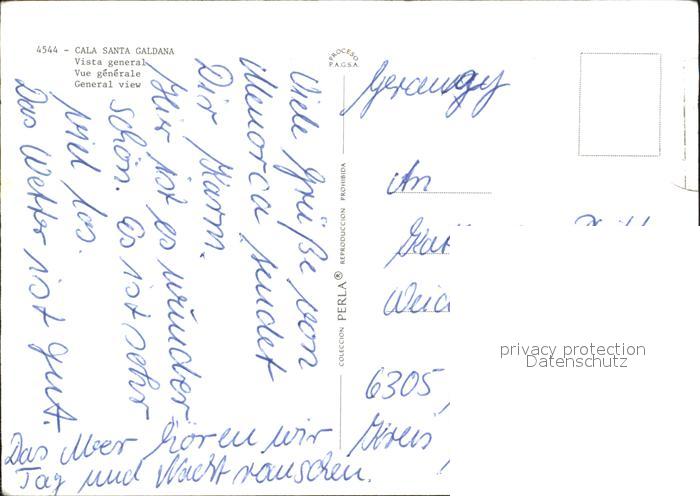 4544 - CALA SANTA GALDANA
Vista general
Vue générale
General view
PROCESO
P.A.G.S.A.
COLECCION PERLA® REPRODUCCION PROHIBIDA
Viele Grüße von
Menorca sendet
Dir Karm.
Hier ist es wunder
schön. Es ist sehr
viel los.
Das Wetter ist gut.
Das Meer hören wir
Tag und Nacht rauschen.
Germany
An
6305,
Kreis
privacy protection
Datenschutz